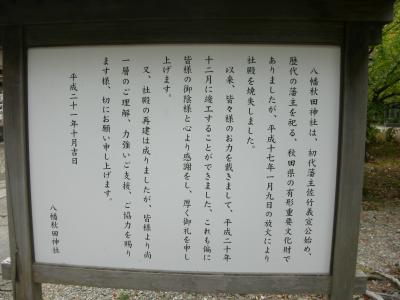 八幡秋田神社は、初代藩主佐竹義宣公始め、
歴代の藩主を祀る、秋田県の有形重要文化財で
ありましたが、平成十七年一月九日の放火により
社殿を焼失しました。
以来、皆々様のお力を戴きまして、平成二十年
十二月に竣工することができました、これも偏に
皆様の御陰様と心より感謝をし、厚く御礼を申し
上げます。
又、社殿の再建は成りましたが、皆様より尚
一層のご理解、力強いご支援、ご協力を賜り
ます様、切にお願い申し上げます。
平成二十一年十月吉日
八幡秋田神社